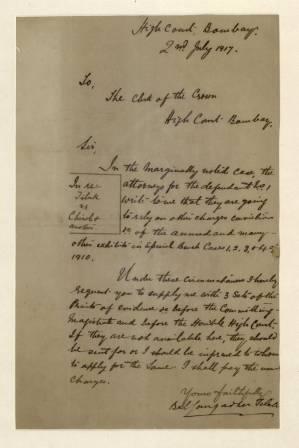 High Court, Bombay.
2nd July 1917.
To,
The Clerk of the Crown
High Court Bombay.
Sir,
In the marginally noted case, the
In re
Tilak
vs
Chirol &
another
attorneys for the defendant No. 1
write to me that they are going
to rely on other charges convictions
of the accused and many
other exhibits in Special Bench Cases 1, 2, 3, & 4 of
1910.
Under these circumstances I hereby
request you to supply me with 3 Sets of the
Prints of evidence before the Committing
Magistrate and before the Honble High Court.
If they are not available here, they should
be sent for or I should be informed to whom
to apply for the same. I shall pay the
charges.
Yours faithfully
Bal Gangadhar Tilak